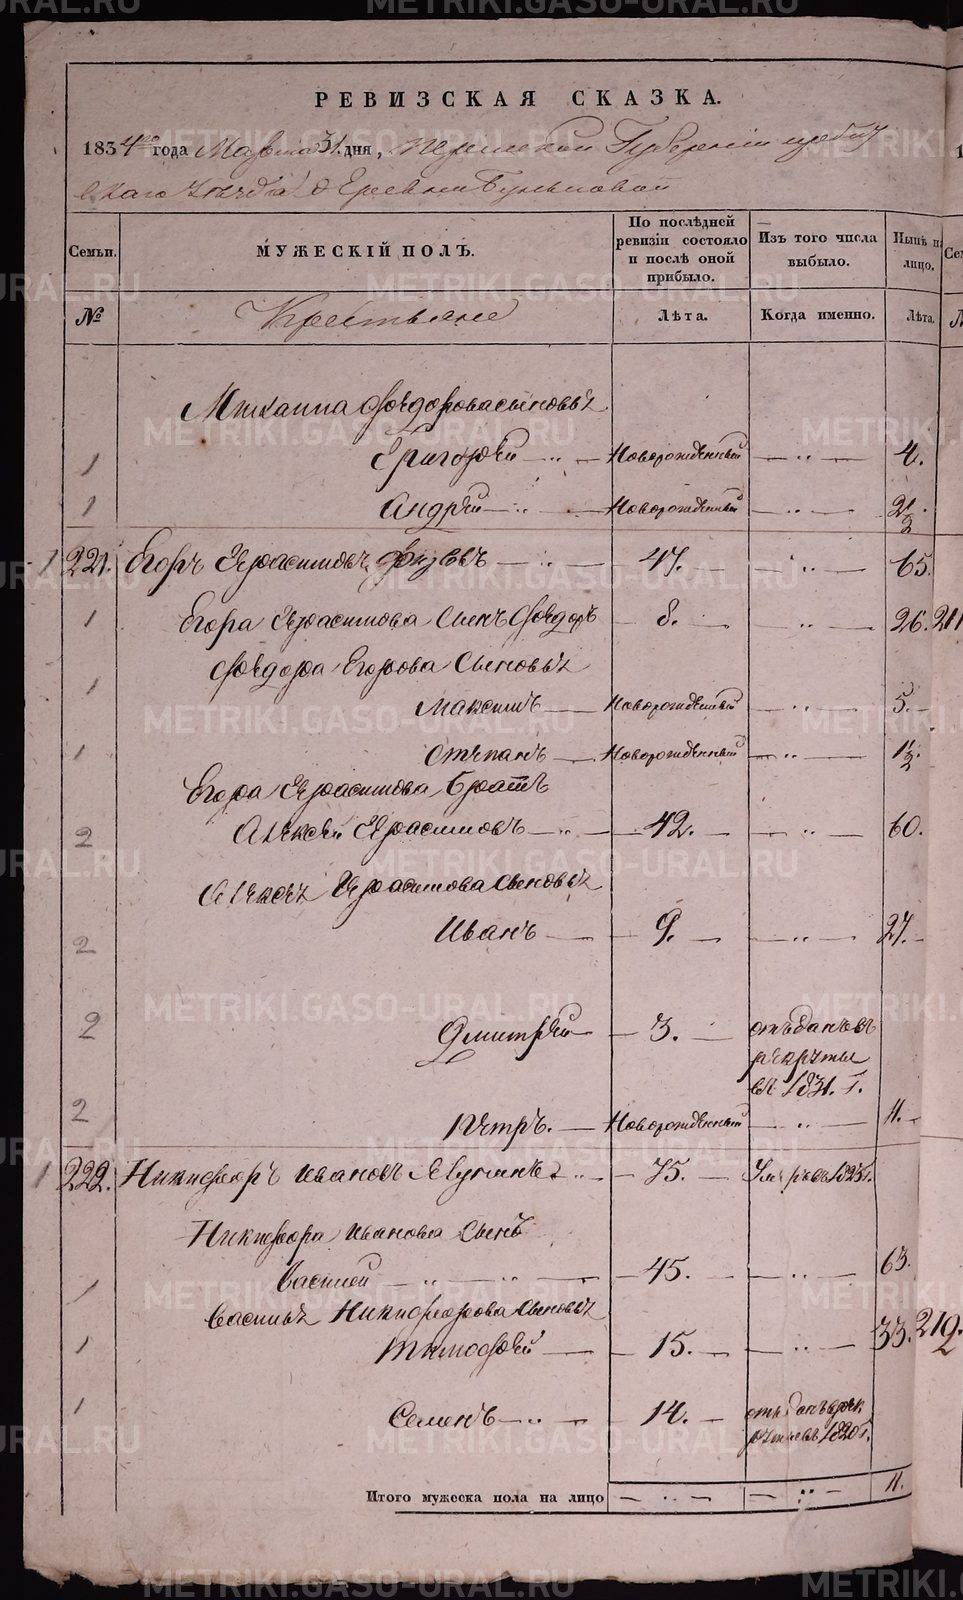 РЕВИЗСКАЯ СКАЗКА.
1834го года Марта 31. дня, Пермской Губерніи Ирбит
скаго уѣзда деревни
Семьи.
МУЖЕСКІЙ ПОЛЪ.
По послѣдней ревизіи состояло и послѣ оной прибыло.
Изъ того числа выбыло.
Нынѣ на лицо.
№
Крестьяне
Лѣта.
Когда именно.
Лѣта.
Михаила Феодорова сыновья
1 Григорей — Новорожденный — 4.
1 Андрей — Новорожденный — 2 1/2.
1 221. Егоръ Герасимовъ — 47. — 65.
1 Егора Герасимова Сынъ Феодоръ — 8. — 26.
Феодора Егорова Сыновья
1 Максимъ — Новорожденный — 5.
1 Степанъ — Новорожденный — 1 1/2.
Егора Герасимова Братъ
2 Алексей Герасимовъ — 42. — 60.
Алексея Герасимова Сыновья
2 Иванъ — 9. — 27.
2 Дмитрей — 3. — отъданъ въ
рекруты
въ 1831. г.
2 Петръ. — Новорожденный — 11.
1 222. Никифоръ Ивановъ — 75. — Умеръ въ 1825 г.
Никифора Иванова Сынъ
1 Василей — 45. — 63.
Василья Никифорова Сыновья
1 Тимофей — 15. — 33. 219.
1 Семенъ — 14. — отъданъ в рек
руты въ 1820 г.
Итого мужеска пола на лицо — 11.
METRIKI.GASO-URAL.RU